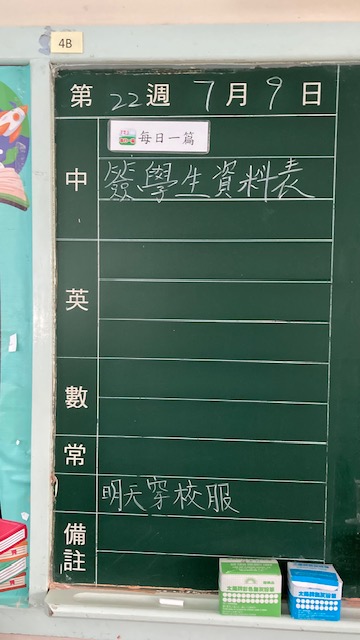 4B
第22週7月9日
每日一篇
中
簽學生資料表
英
數
常
明天穿校服
備註